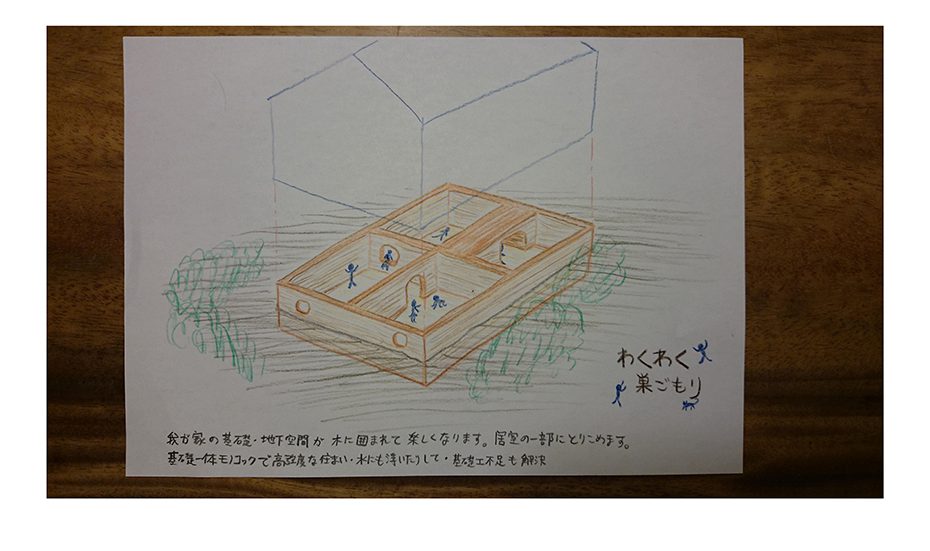 わくわく
巣ごもり
我が家の基礎・地下空間が 木に囲まれて 楽しくなります。居室の一部にとりこめます。
基礎一体モノコックで高強度な住まい・水にも浮いたりして・基礎工不足も解決